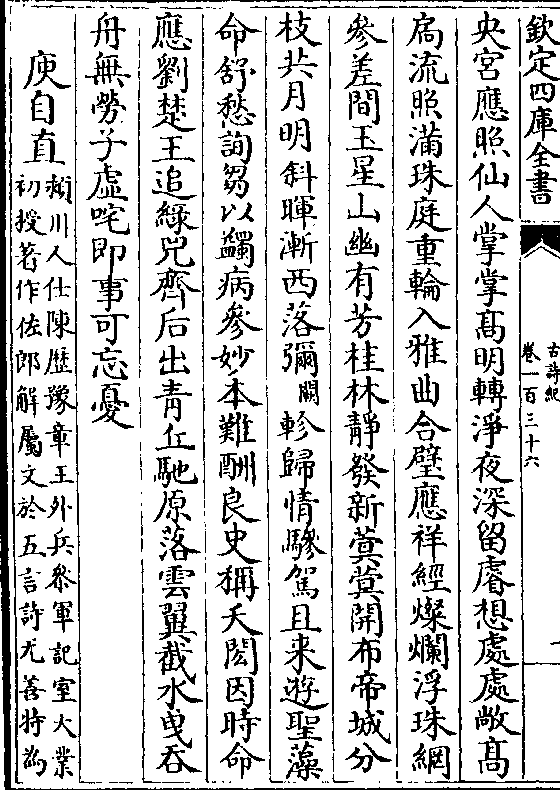 欽定四庫全書
古詩紀
卷一百三十六
央宮應照仙人掌掌髙明轉淨夜深留睿想處處敞髙
扃流照滿珠庭重輪入雅曲合璧應祥經燦爛浮珠網
參差間玉星山幽有芳桂林靜發新蓂蓂開布帝城分
枝共月明斜暉漸西落彌闕軫歸情驂駕且来遊聖藻
命舒愁詢芻以蠲病參妙本難酬良史稱夭閼因時命
應劉楚王追綠兕齊后出青丘馳原落雲翼截水曳吞
舟無勞子虚咤即事可忘憂
庾自直
潁川人仕陳歴豫章王外兵參軍記室大業
初授著作佐郎解屬文於五言詩尤善特為